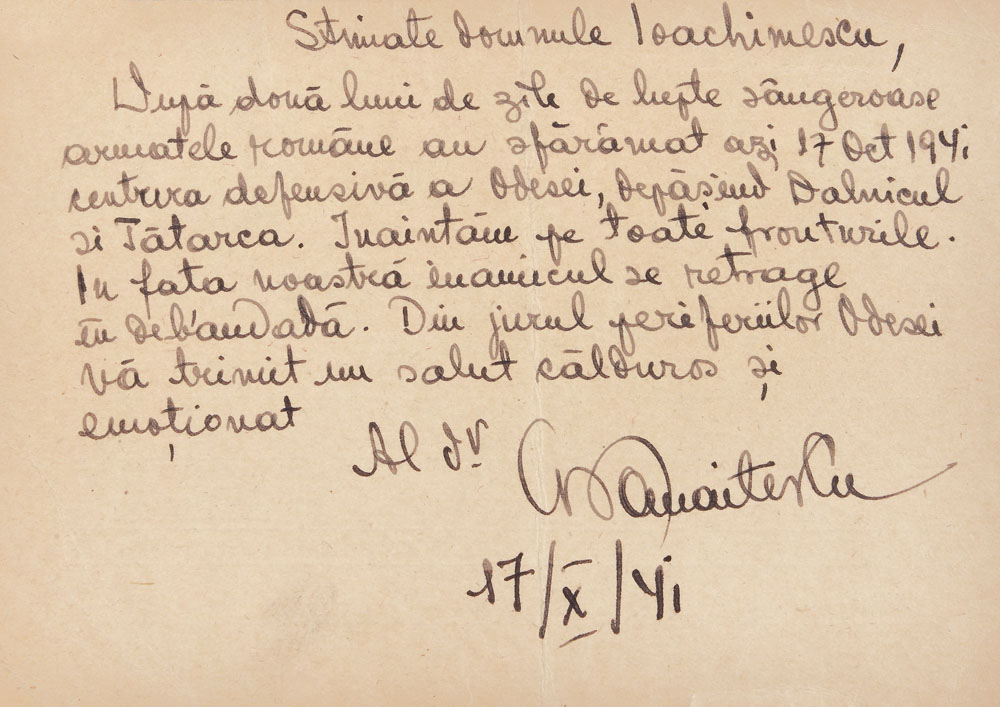 Stimate domnule Ioachimescu,
După două luni de zile de lupte sângeroase
armatele române au sfărâmat azi 17 Oct 1941
centura defensivă a Odesei, depășind Dalnicul
si Tătarca. Inaintăm pe toate fronturile.
In fata noastră inamicul se retrage
în debandadă. Din jurul periferiilor Odesei
vă trimit un salut călduros și
emoționat
Al dv
17/X/41